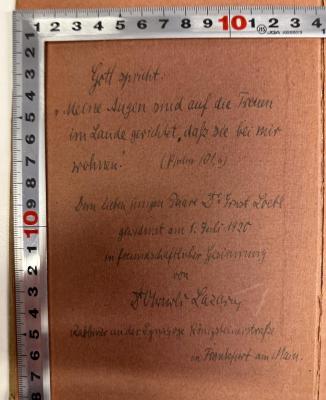 Gott spricht:
"Meine Augen sind auf die Treuen
im Lande gerichtet, daß sie bei mir
wohnen." (Psalm 101,6)
Dem lieben jungen Paare Dr Ernst Loebl
gewidmet am 1. Juli 1930
in freundschaftlicher Gesinnung
von
Dr Lazarus
Rabbiner an der Synagoge Königsteinerstraße
in Frankfurt am Main.